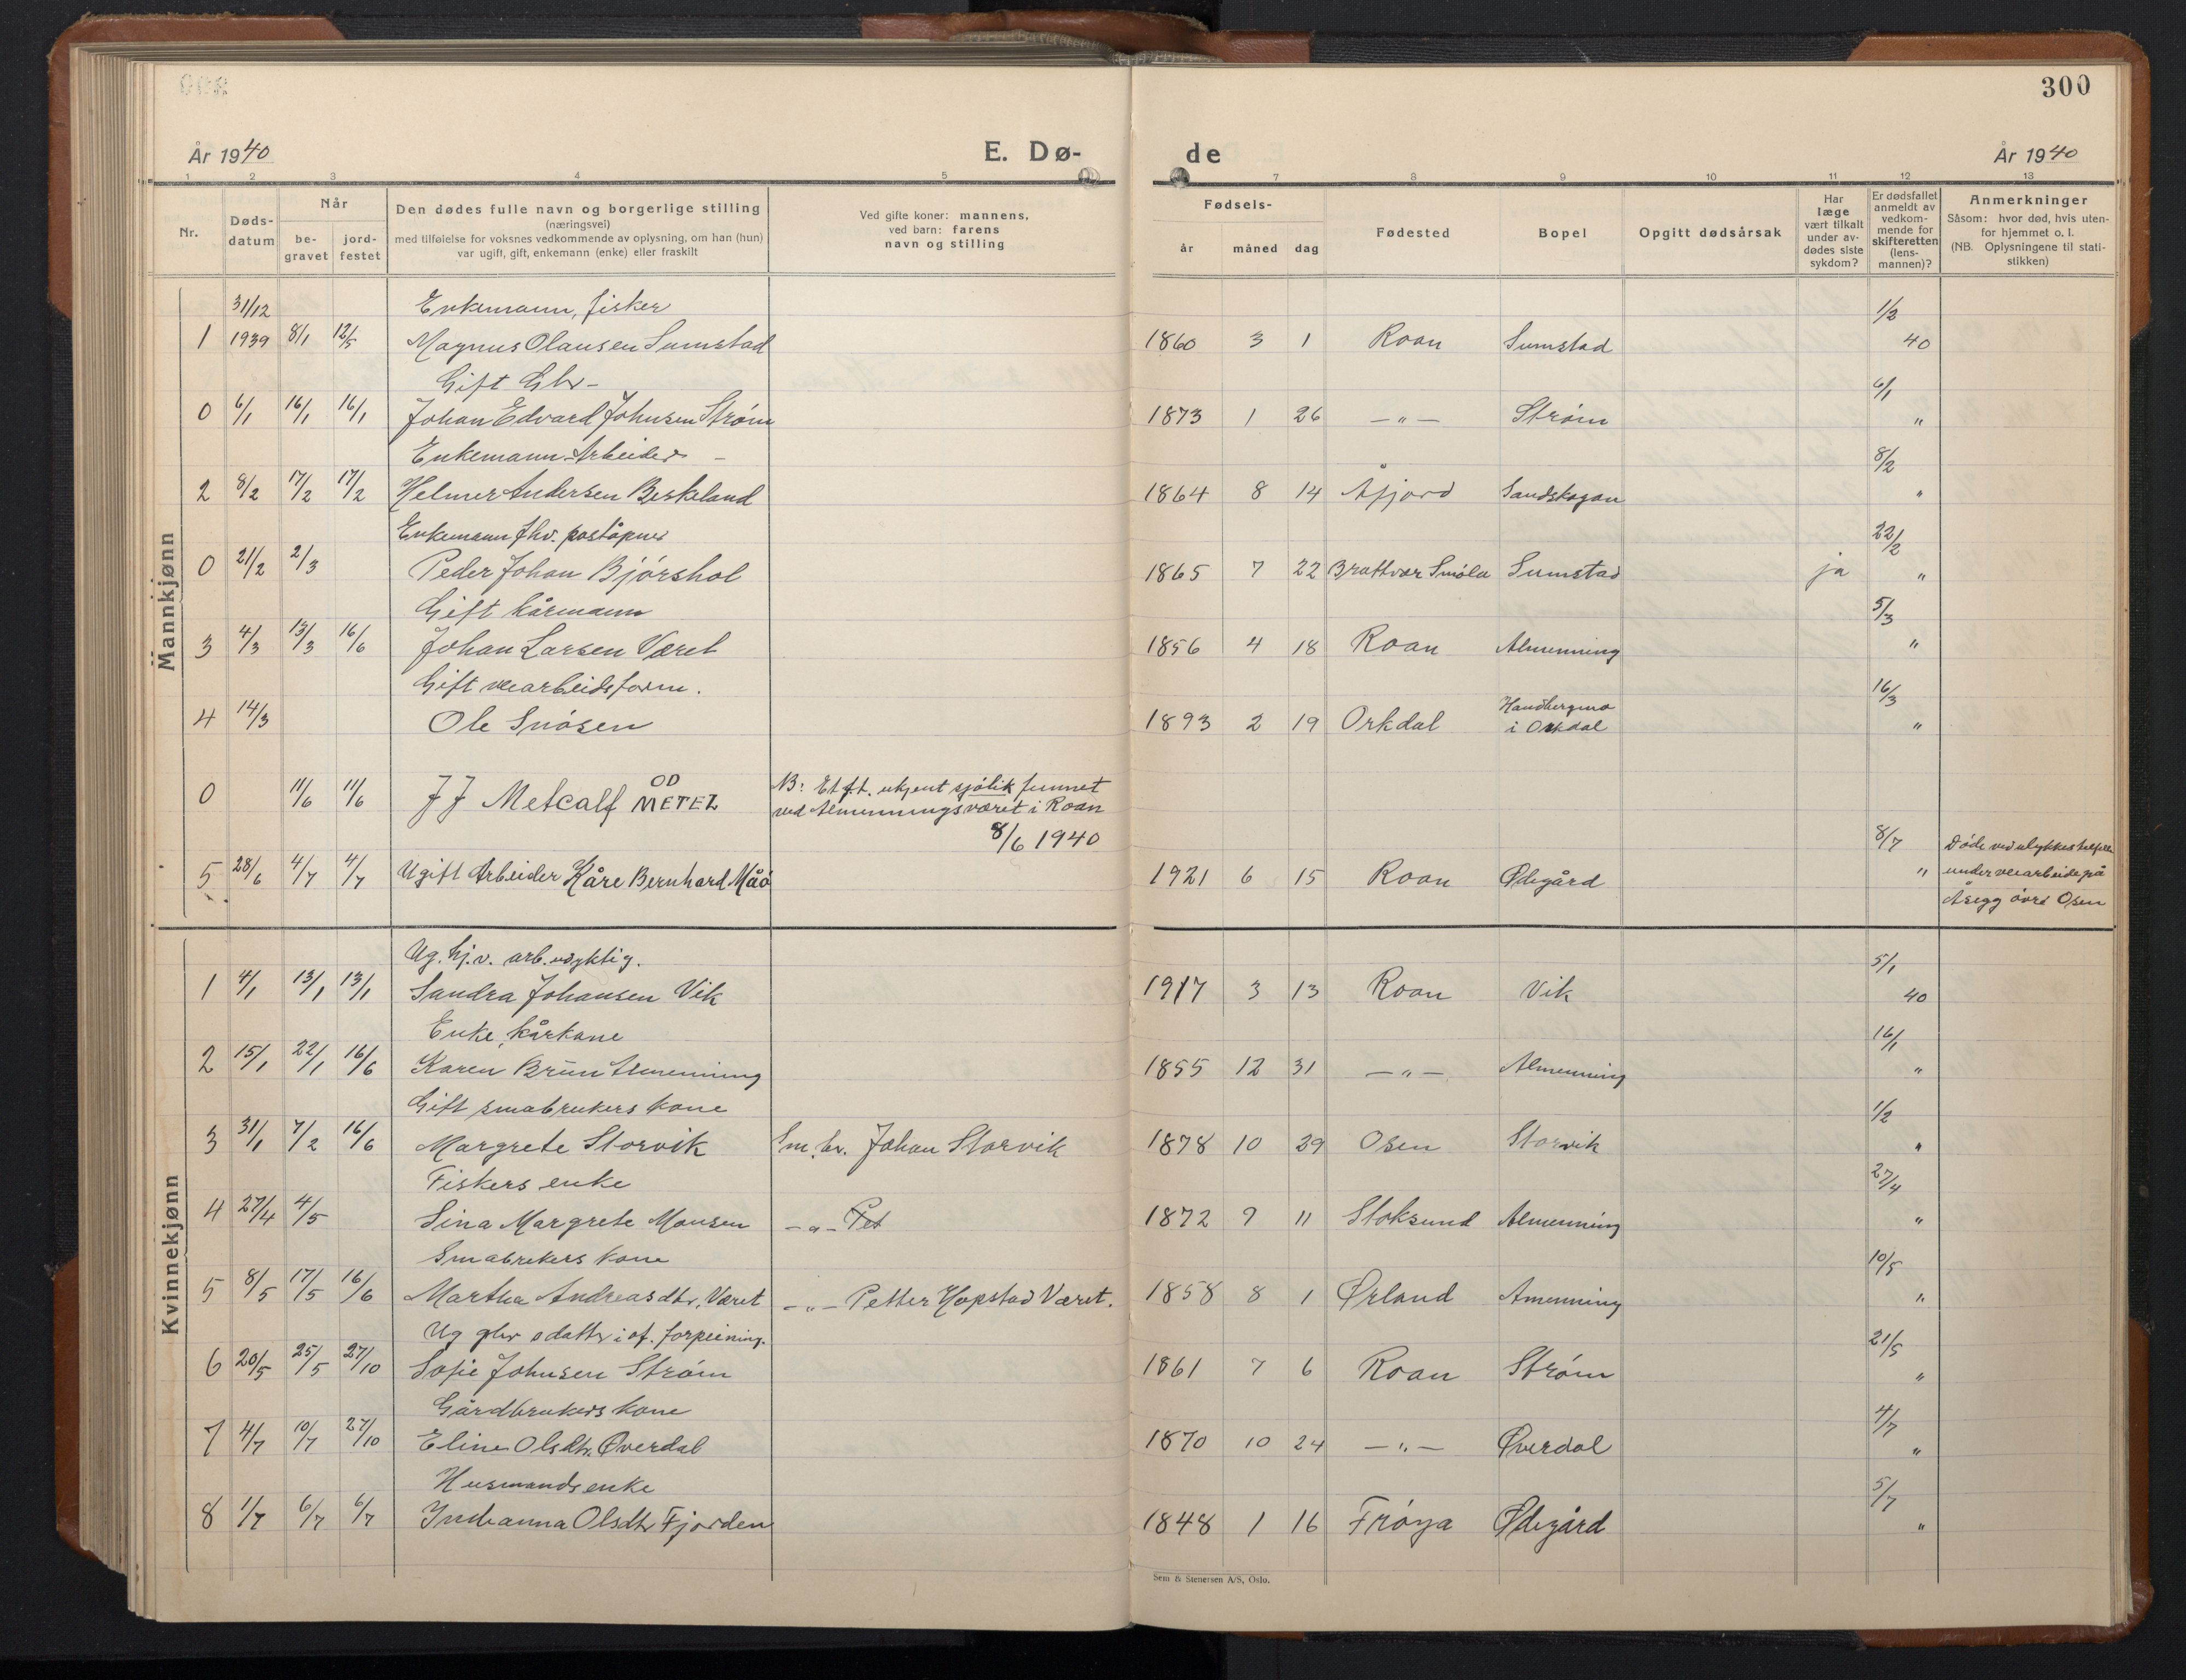 300
År 1940
E. Dø-
de
År 1940
1 2 3 4 5 7 8 9 10 11 12 13
Nr.
Døds-
datum
Når
be-
gravet
jord-
festet
Den dødes fulle navn og borgerlige stilling
(næringsvei)
med tilføielse for voksnes vedkommende av oplysning, om han (hun)
var ugift, gift, enkemann (enke) eller fraskilt
Ved gifte koner: mannens,
ved barn: farens
navn og stilling
Fødsels-
år måned dag
Fødested
Bopel
Opgitt dødsårsak
Har
læge
vært tilkalt
under av-
dødes siste
sykdom?
Er dødsfallet
anmeldt av
vedkom-
mende for
skifteretten
(lens-
mannen)?
Anmerkninger
Såsom: hvor død, hvis uten-
for hjemmet o. l.
(NB. Oplysningene til stati-
stikken)
Mannkjønn
31/12 Enkemann, fisker 1/2
1 1939 8/1 12/5 Magnus Olausen Sumstad 1860 3 1 Roan Sumstad 40
Gift Gbr - 6/1
0 6/1 16/1 16/1 Johan Edvard Johnsen Strøm 1873 1 26 -"- Strøm "
Enkemann - Arbeider - 8/2
2 8/2 17/2 17/2 Helmer Andersen Beskeland 1864 8 14 Åfjord Sandskogan "
Enkemann fhv. poståpner 22/2
0 21/2 2/3 Peder Johan Bjørshol 1865 7 22 Brattvær Smøla Sumstad ja "
Gift kårmann 5/3
3 4/3 13/3 16/6 Johan Larsen Været 1856 4 18 Roan Almenning "
Gift veiarbeidsform. 16/3
4 14/3 Ole Snøsen 1893 2 19 Orkdal Handbergmo
i Orkdal "
0 11/6 11/6 J J Metcalf OD
METEZ
NB: Et f.t. ukjent sjølik funnet
ved Almenningsværet i Roan
8/6 1940
8/7
5 28/6 4/7 4/7 Ugift Arbeider Kåre Bernhard Måø 1921 6 15 Roan Ødegård "
Døde ved ulykkestilfelle
under veiarbeide på
Åsegg øvre Osen
Kvinnekjønn
Ug. hj.v. arb.udyktig. 5/1
1 4/1 13/1 13/1 Sandra Johansen Vik 1917 3 13 Roan Vik 40
Enke, kårkone 16/1
2 15/1 22/1 16/6 Karen Brun Almenning 1855 12 31 -"- Almenning "
Gift småbrukers kone 1/2
3 31/1 7/2 16/6 Margrete Storvik Sm.br. Johan Storvik 1878 10 29 Osen Storvik "
Fiskers enke 27/4
4 27/4 4/5 Sina Margrete Monsen -"- Pet 1872 9 11 Stoksund Almenning "
Småbrekers kone 10/5
5 8/5 17/5 16/6 Martha Andreasdtr. Været -"- Petter Hopstad Været. 1858 8 1 Ørland Amenning "
Ug gbr sdattr i of. forpleining. 21/5
6 20/5 25/5 27/10 Sofie Johnsen Strøm 1861 7 6 Roan Strøm "
Gårdbrukers kone 4/7
7 4/7 10/7 27/10 Eline Olsdtr. Øverdal 1870 10 24 -"- Øverdal "
Husmands enke 5/7
8 1/7 6/7 6/7 Indianna Olsdtr Fjorden 1848 1 16 Frøya Ødegård "
Sem & Stenersen A/S, Oslo.